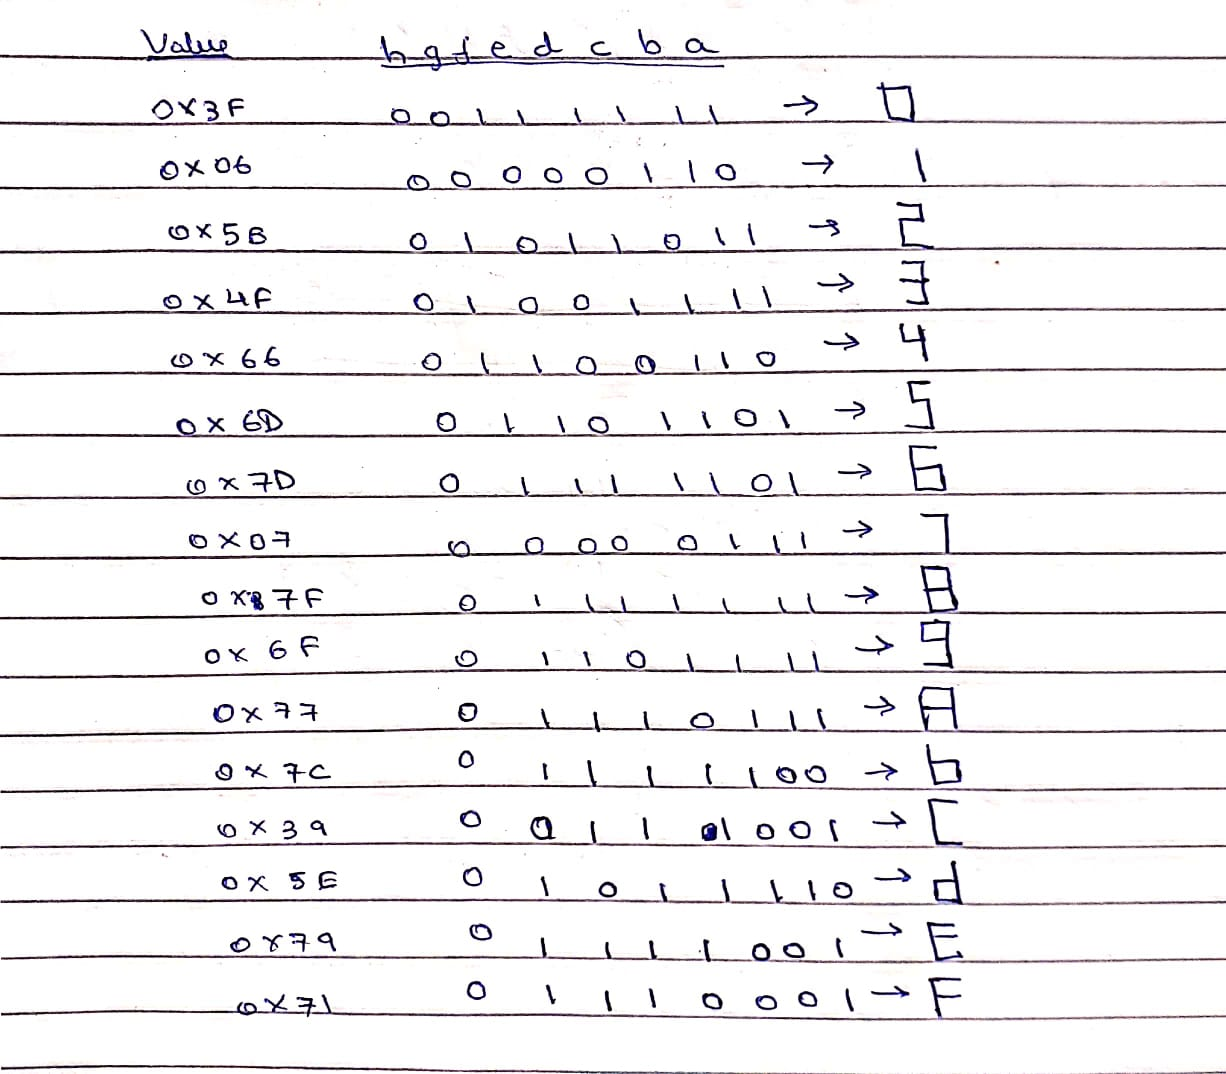 Value h g f e d c b a
0X3F 0 0 1 1 1 1 1 1 → 0
0X06 0 0 0 0 0 1 1 0 → 1
0X5B 0 1 0 1 1 0 1 1 → 2
0X4F 0 1 0 0 1 1 1 1 → 3
0X66 0 1 1 0 0 1 1 0 → 4
0X6D 0 1 1 0 1 1 0 1 → 5
0X7D 0 1 1 1 1 1 0 1 → 6
0X07 0 0 0 0 0 1 1 1 → 7
0X7F 0 1 1 1 1 1 1 1 → 8
0X6F 0 1 1 0 1 1 1 1 → 9
0X77 0 1 1 1 0 1 1 1 → A
0X7C 0 1 1 1 1 1 0 0 → b
0X39 0 0 1 1 1 0 0 1 → C
0X5E 0 1 0 1 1 1 1 0 → d
0X79 0 1 1 1 1 0 0 1 → E
0X71 0 1 1 1 0 0 0 1 → F